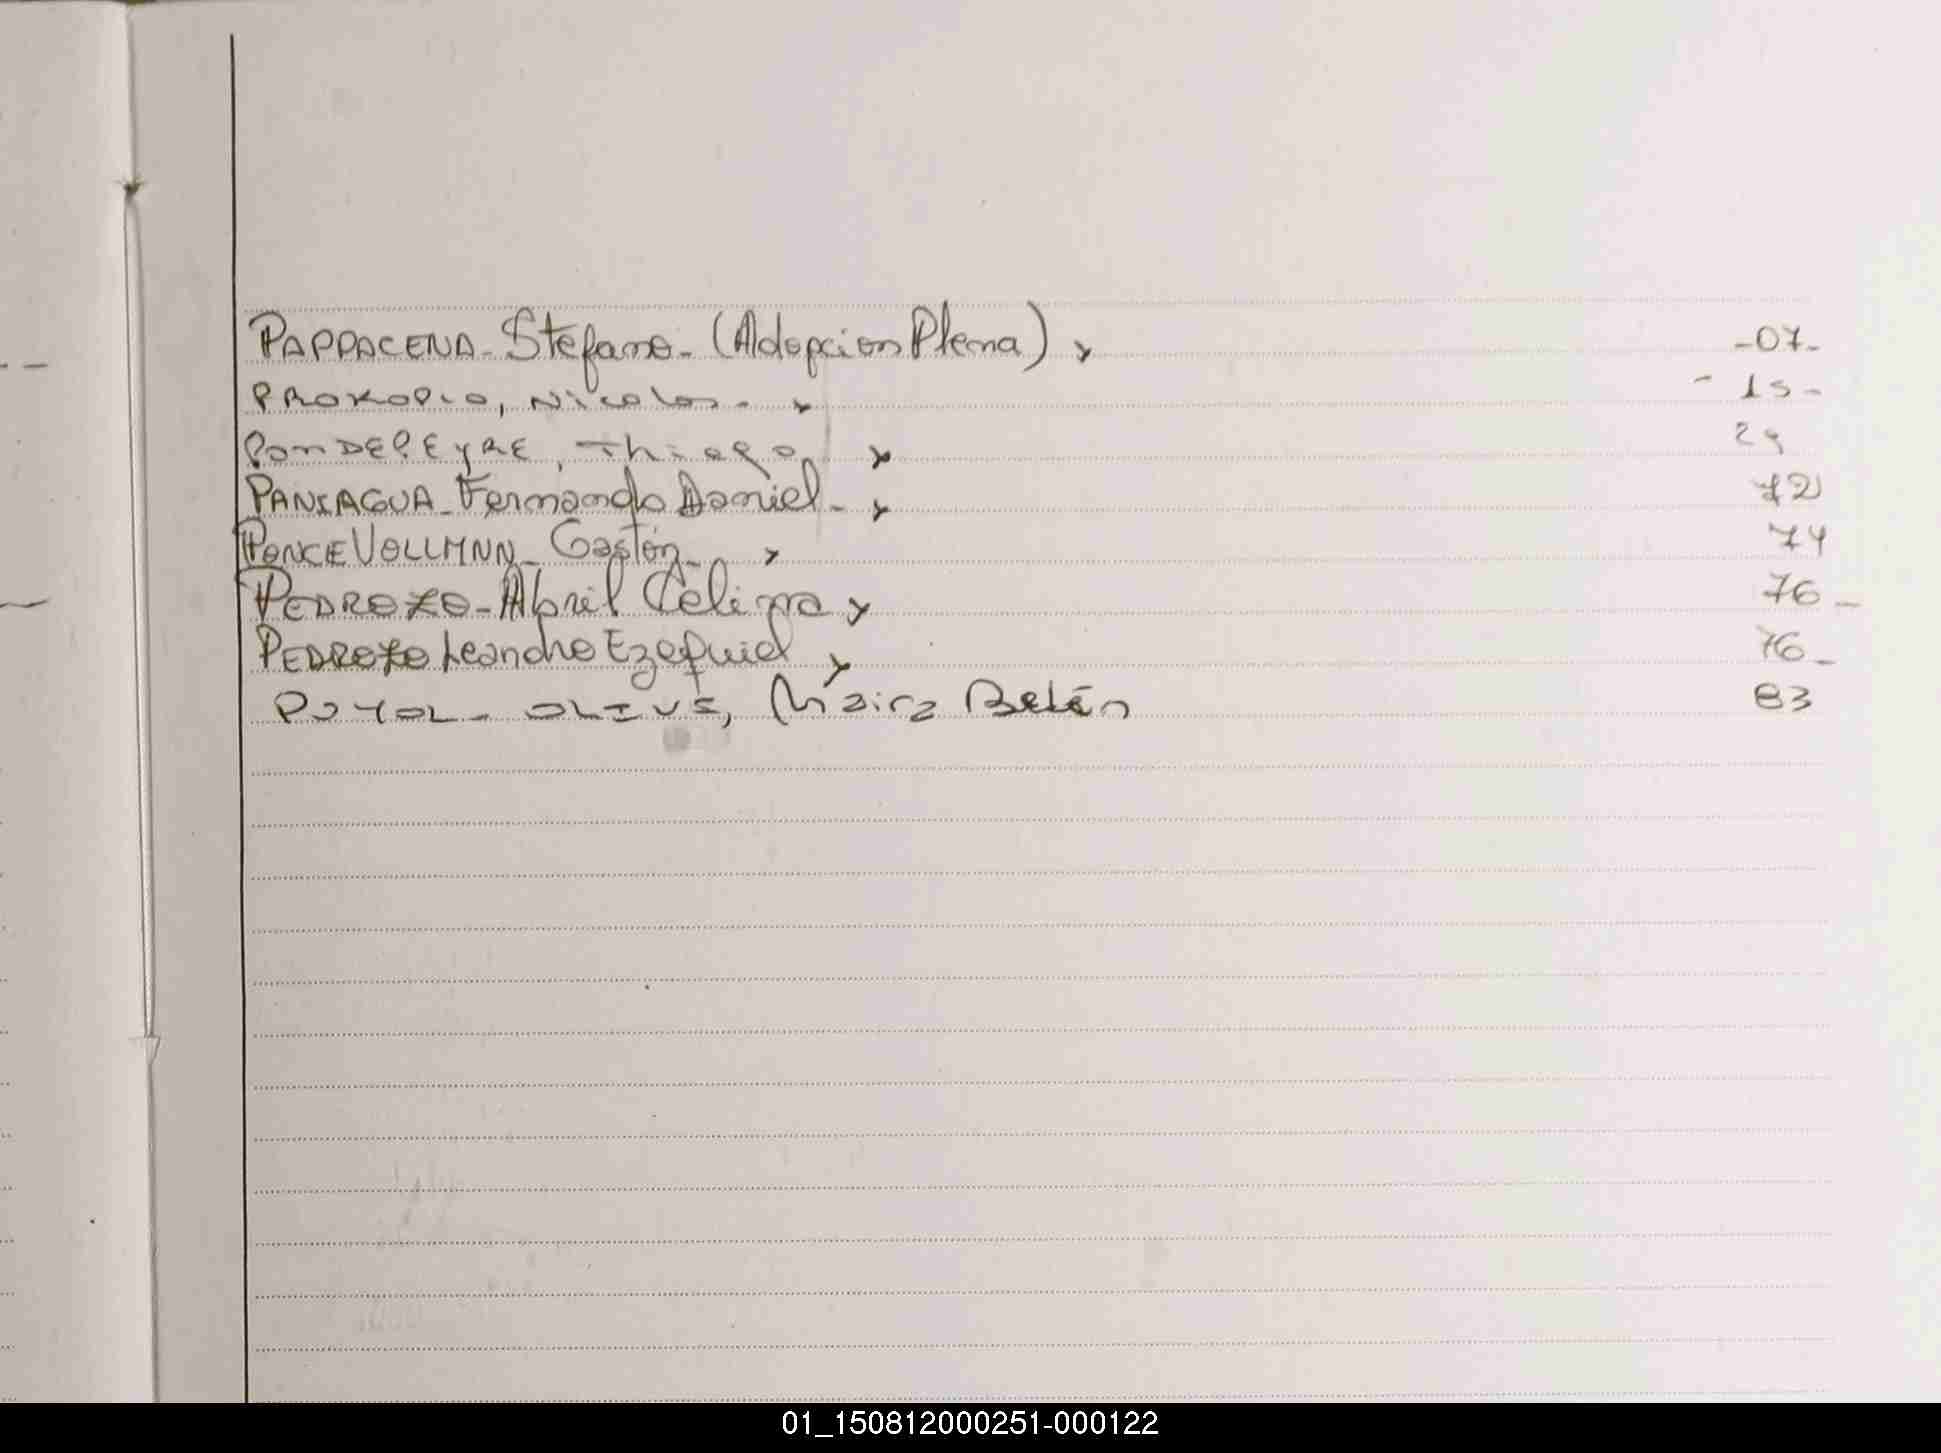 PAPPACENA - Stefano - (Adopcion Plena) -07-
PROKOPIO, Nicolas - - 15 -
PONDEPEYRE, Thiago 29
PANIAGUA - Fernando Daniel - 72
PONCE VOLLMNN - Gastón - 74
PEDROZO - Abril Celina 76 -
PEDROZO Leandro Ezequiel 76 -
PUYOL - OLIVE, Maira Belén 83
01_150812000251-000122